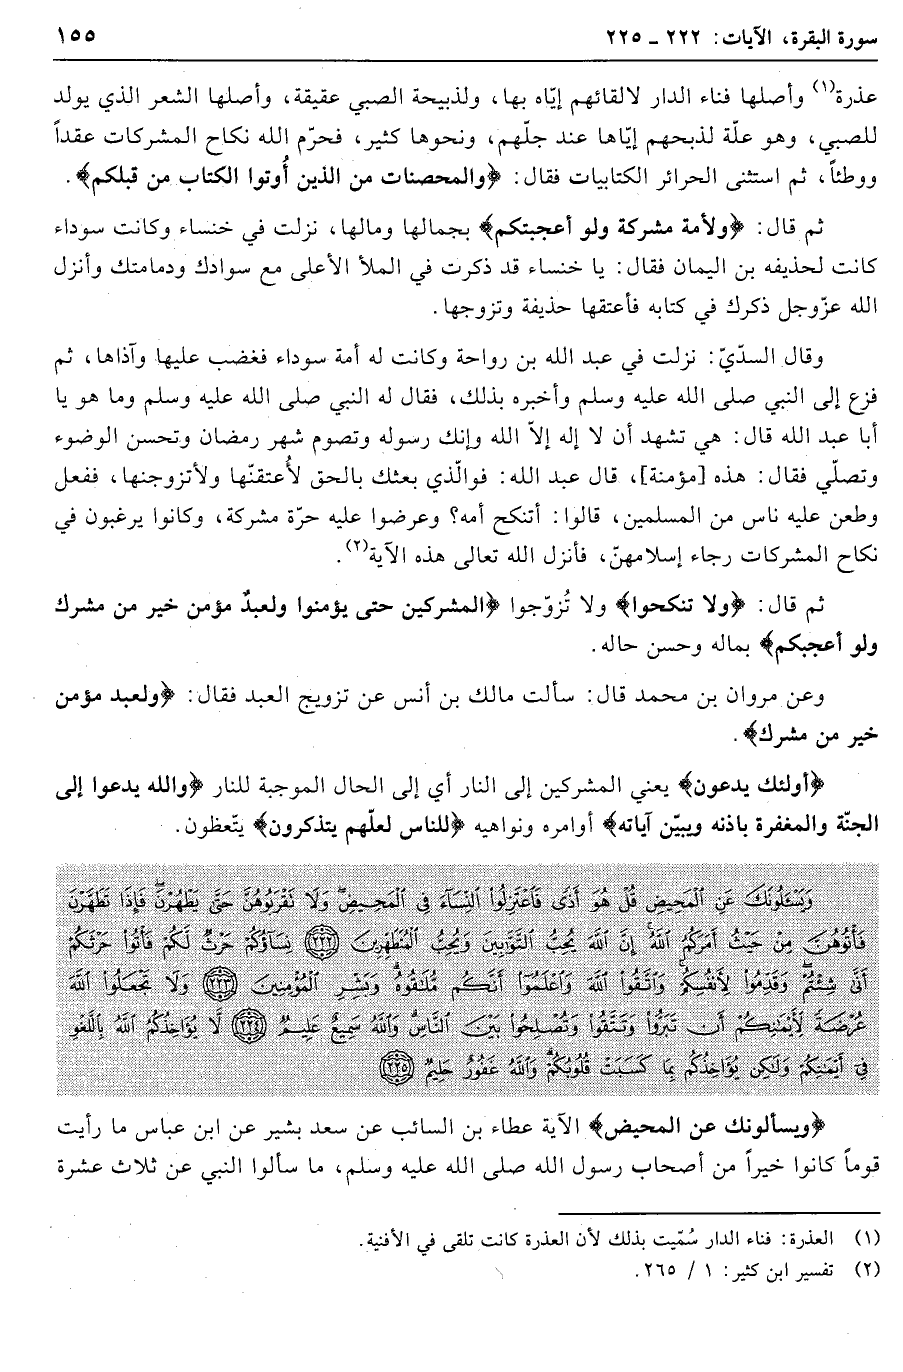 سورة البقرة، الآيات: ٢٢٢ ـ ٢٢٥
١٥٥
عذرة(١) وأصلها فناء الدار لالقائهم إيّاه بها، ولذبيحة الصبي عقيقة، وأصلها الشعر الذي يولد
للصبي، وهو علّة لذبحهم إيّاها عند جلّهم، ونحوها كثير، فحرّم الله نكاح المشركات عقداً
ووطئاً، ثم استثنى الحرائر الكتابيات فقال: ﴿والمحصنات من الذين أُوتوا الكتاب من قبلكم﴾.
ثم قال: ﴿ولأمة مشركة ولو أعجبتكم﴾ بجمالها ومالها، نزلت في خنساء وكانت سوداء
كانت لحذيفه بن اليمان فقال: يا خنساء قد ذكرت في الملأ الأعلى مع سوادك ودمامتك وأنزل
الله عزّوجل ذكرك في كتابه فأعتقها حذيفة وتزوجها.
وقال السدّيّ: نزلت في عبد الله بن رواحة وكانت له أمة سوداء فغضب عليها وآذاها، ثم
فزع إلى النبي صلى الله عليه وسلم وأخبره بذلك، فقال له النبي صلى الله عليه وسلم وما هو يا
أبا عبد الله قال: هي تشهد أن لا إله إلاّ الله وإنك رسوله وتصوم شهر رمضان وتحسن الوضوء
وتصلّي فقال: هذه [مؤمنة]، قال عبد الله: فوالّذي بعثك بالحق لأُعتقنّها ولأتزوجنها، ففعل
وطعن عليه ناس من المسلمين، قالوا: أتنكح أمه؟ وعرضوا عليه حرّة مشركة، وكانوا يرغبون في
نكاح المشركات رجاء إسلامهنّ، فأنزل الله تعالى هذه الآية(٢).
ثم قال: ﴿ولا تنكحوا﴾ ولا تُزوّجوا ﴿المشركين حتى يؤمنوا ولعبدٌ مؤمن خير من مشرك
ولو أعجبكم﴾ بماله وحسن حاله.
وعن مروان بن محمد قال: سألت مالك بن أنس عن تزويج العبد فقال: ﴿ولعبد مؤمن
خير من مشرك﴾.
﴿أولئك يدعون﴾ يعني المشركين إلى النار أي إلى الحال الموجبة للنار ﴿والله يدعوا إلى
الجنّة والمغفرة باذنه ويبيّن آياته﴾ أوامره ونواهيه ﴿للناس لعلّهم يتذكرون﴾ يتّعظون.
وَيَسْـَٔلُونَكَ عَنِ ٱلْمَحِيضِ قُلْ هُوَ أَذًى فَٱعْتَزِلُوا۟ ٱلنِّسَآءَ فِى ٱلْمَحِيضِ وَلَا تَقْرَبُوهُنَّ حَتَّىٰ يَطْهُرْنَ فَإِذَا تَطَهَّرْنَ
فَأْتُوهُنَّ مِنْ حَيْثُ أَمَرَكُمُ ٱللَّهُ إِنَّ ٱللَّهَ يُحِبُّ ٱلتَّوَّٰبِينَ وَيُحِبُّ ٱلْمُتَطَهِّرِينَ ﴿٢٢٢﴾ نِسَآؤُكُمْ حَرْثٌ لَّكُمْ فَأْتُوا۟ حَرْثَكُمْ
أَنَّىٰ شِئْتُمْ وَقَدِّمُوا۟ لِأَنفُسِكُمْ وَٱتَّقُوا۟ ٱللَّهَ وَٱعْلَمُوٓا۟ أَنَّكُم مُّلَٰقُوهُ وَبَشِّرِ ٱلْمُؤْمِنِينَ ﴿٢٢٣﴾ وَلَا تَجْعَلُوا۟ ٱللَّهَ
عُرْضَةً لِّأَيْمَٰنِكُمْ أَن تَبَرُّوا۟ وَتَتَّقُوا۟ وَتُصْلِحُوا۟ بَيْنَ ٱلنَّاسِ وَٱللَّهُ سَمِيعٌ عَلِيمٌ ﴿٢٢٤﴾ لَّا يُؤَاخِذُكُمُ ٱللَّهُ بِٱللَّغْوِ
فِىٓ أَيْمَٰنِكُمْ وَلَٰكِن يُؤَاخِذُكُم بِمَا كَسَبَتْ قُلُوبُكُمْ وَٱللَّهُ غَفُورٌ حَلِيمٌ ﴿٢٢٥﴾
﴿ويسألونك عن المحيض﴾ الآية عطاء بن السائب عن سعد بشير عن ابن عباس ما رأيت
قوماً كانوا خيراً من أصحاب رسول الله صلى الله عليه وسلم، ما سألوا النبي عن ثلاث عشرة
(١) العذرة: فناء الدار سُمّيت بذلك لأن العذرة كانت تلقى في الأفنية.
(٢) تفسير ابن كثير: ١ / ٢٦٥.